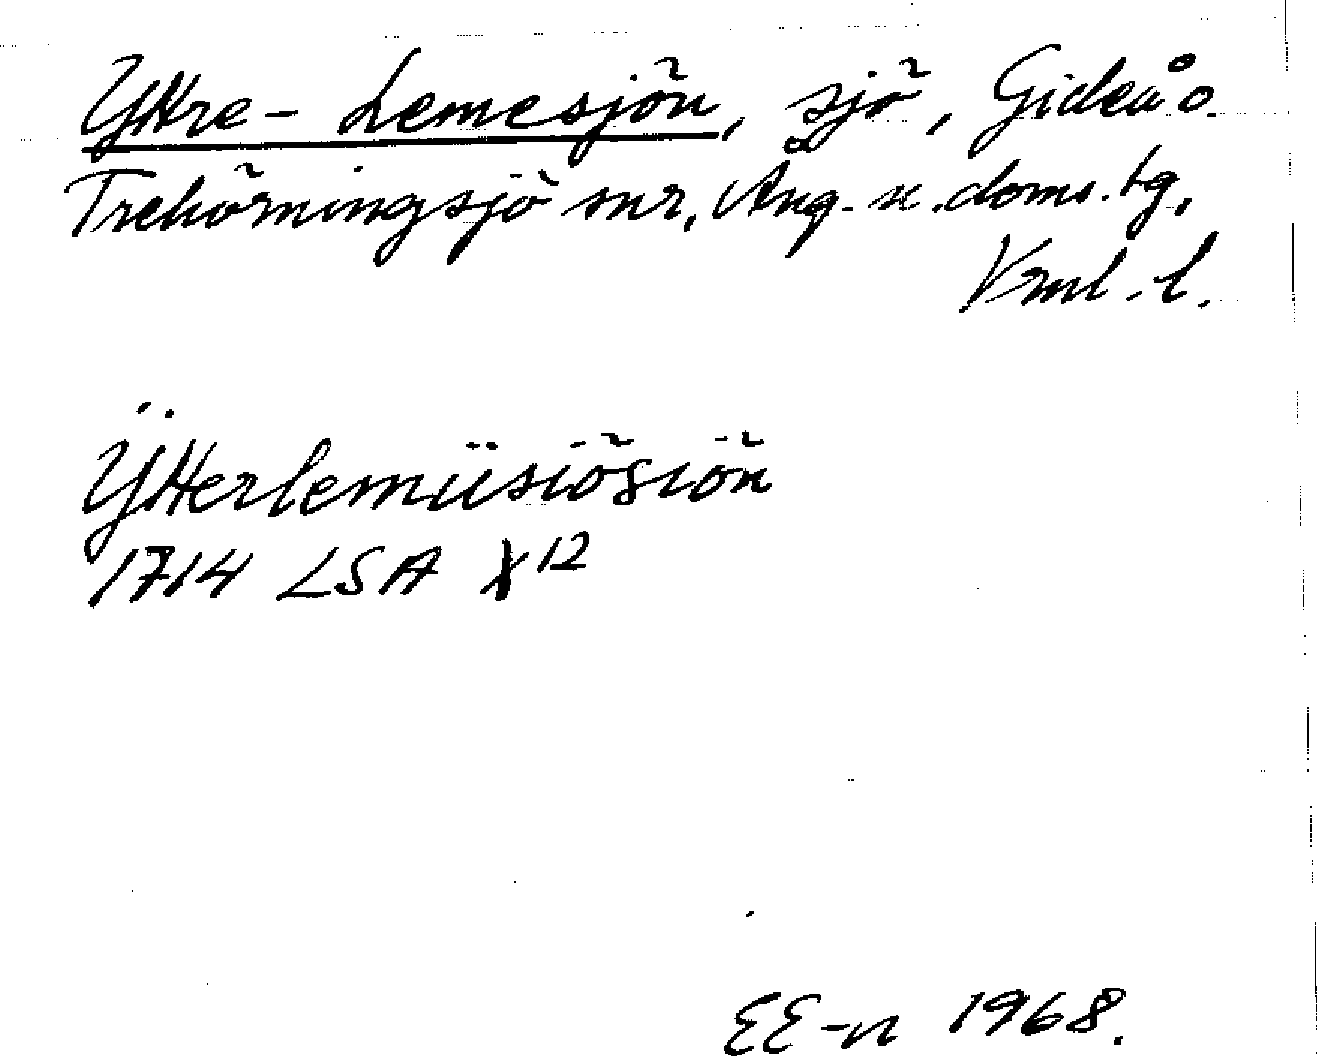 Yttre-Lemesjön, sjö, Gideå o.
Trehörningsjö snr, Ång. n. doms. tg,
Vrml. l.
Ÿtterlemüsiösiön
1714 LSA X 12
EE-n 1968.